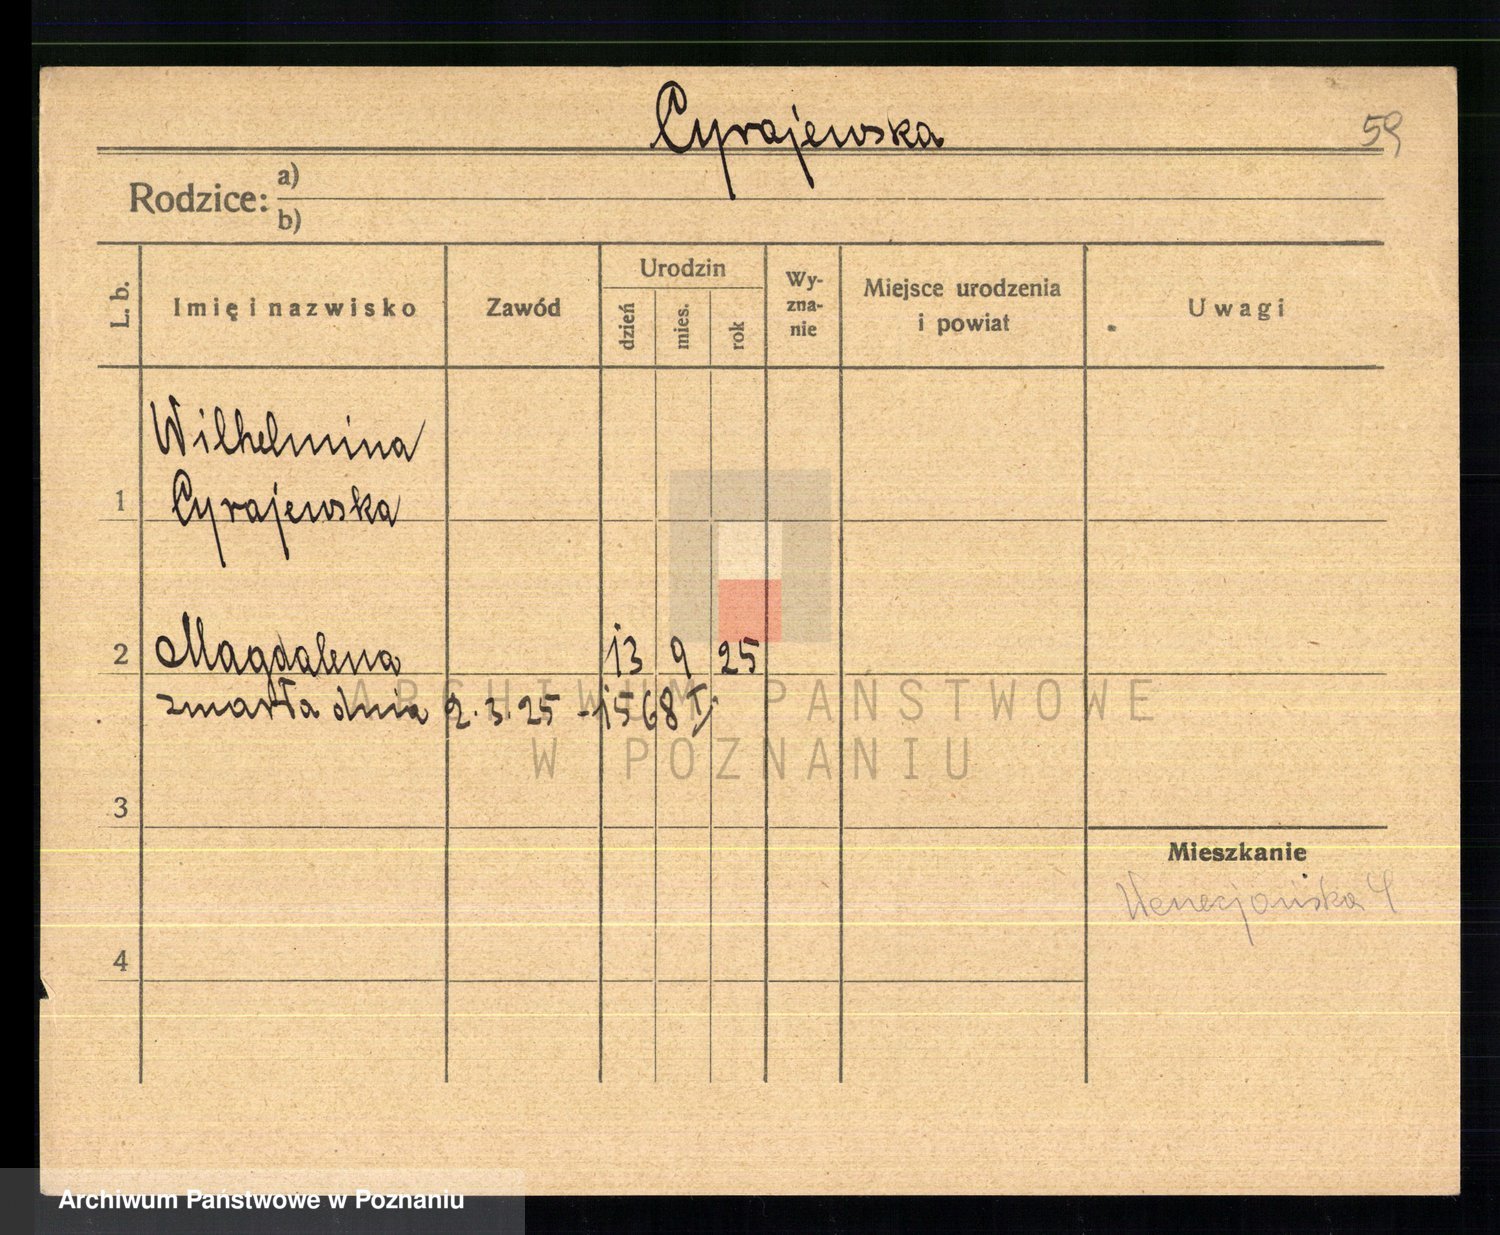 Cyrajewska
59
Rodzice: a)
b)
L. b.
Imię i nazwisko
Zawód
Urodzin
dzień
mies.
rok
Wy-
zna-
nie
Miejsce urodzenia
i powiat
Uwagi
Wilhelmina
1 Cyrajewska
2 Magdalena 13 9 25
zmarła dnia 2.3.25 - 1568
3
Mieszkanie
Wenecjańska 4
4
ARCHIWUM PAŃSTWOWE
W POZNANIU
Archiwum Państwowe w Poznaniu